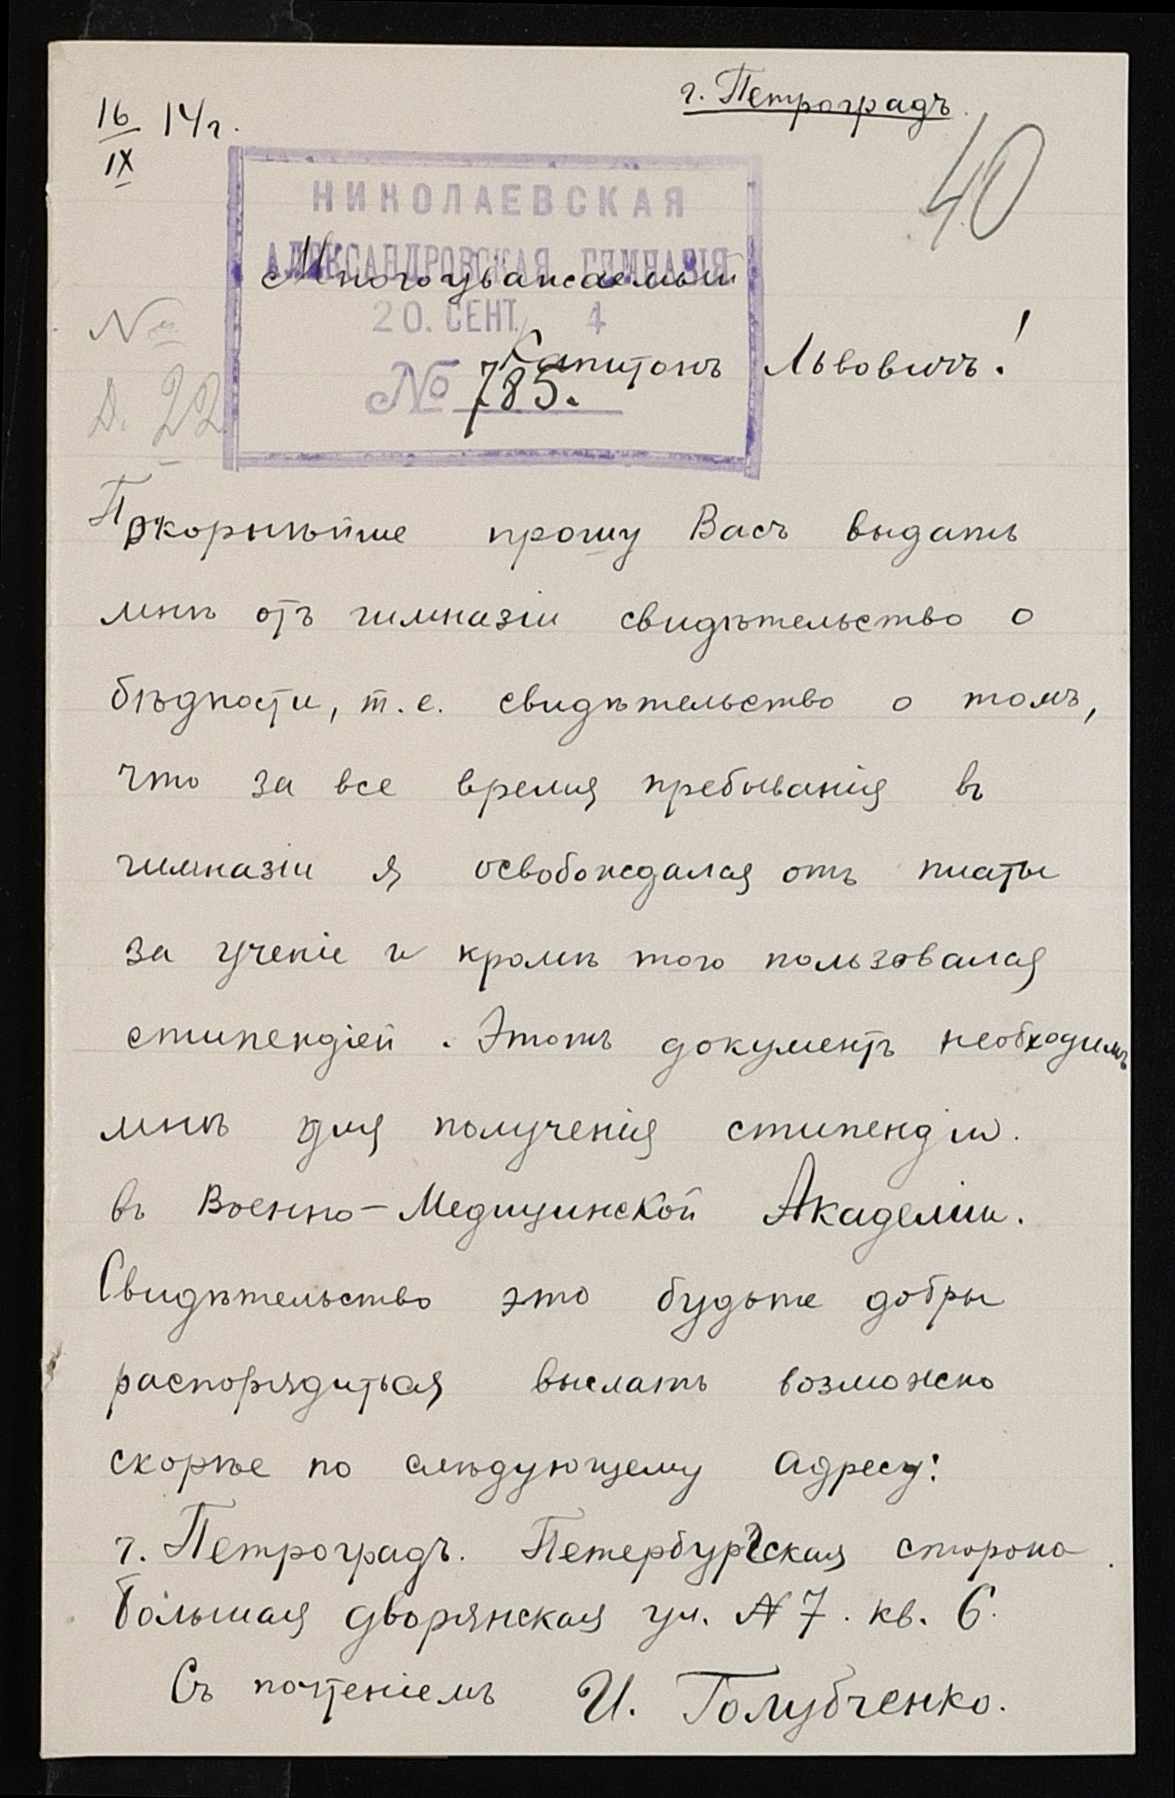 г. Петроградъ.
16/IX 14 г.
40
НИКОЛАЕВСКАЯ
АЛЕКСАНДРОВСКАЯ ГИМНАЗІЯ
Многоуважаемый
20. СЕНТ. 4
№
Капитонъ Львовичъ!
№ 785.
Д. 22
Покорнѣйше прошу Васъ выдать
мнѣ отъ гимназіи свидѣтельство о
бѣдности, т. е. свидѣтельство о томъ,
что за все время пребыванія въ
гимназіи я освобождался отъ платы
за ученіе и кромѣ того пользовался
стипендіей. Этотъ документъ необходимъ
мнѣ для полученія стипендіи.
въ Военно-Медицинской Академіи.
Свидѣтельство это будьте добры
распорядиться выслать возможно
скорѣе по слѣдующему адресу:
г. Петроградъ. Петербургская сторона.
Большая дворянская ул. № 7. кв. 6.
Съ почтеніемъ И. Голубченко.